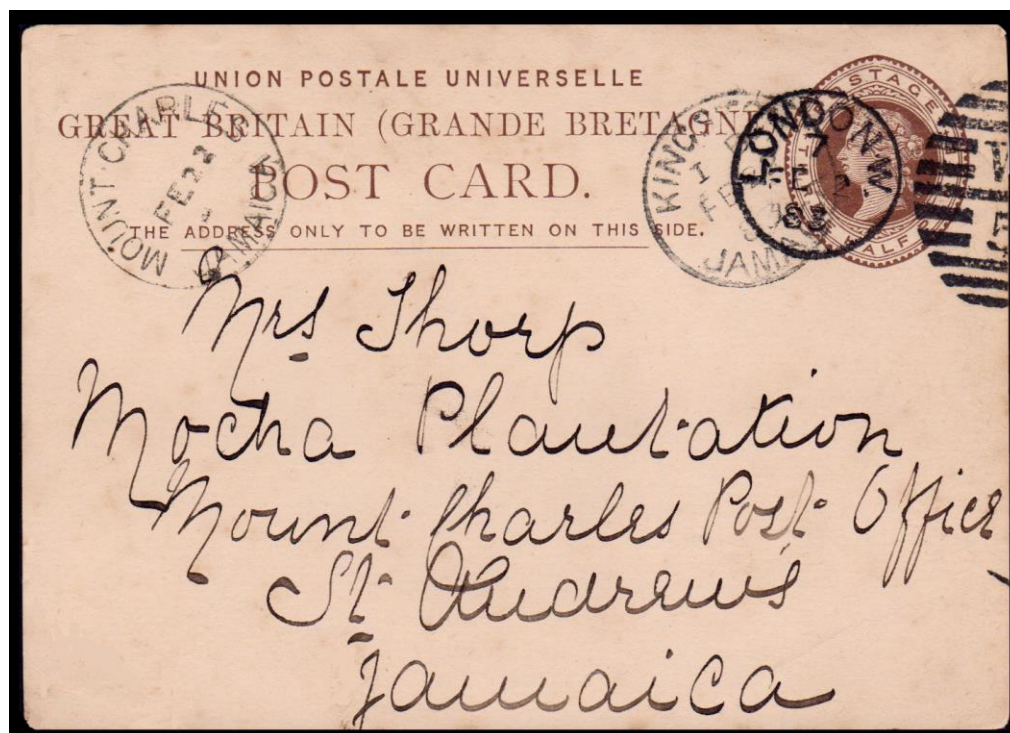 UNION POSTALE UNIVERSELLE
GREAT BRITAIN (GRANDE BRETAGNE
POST CARD.
THE ADDRESS ONLY TO BE WRITTEN ON THIS SIDE.
MOUNT·CHARLES
FE 22
JAMAICA
KINGSTON
FE
JAMA
LONDON·W.
7
83
STAGE
HALF
Mrs Thorp
Mocha Plantation
Mount Charles Post Office
St. Andrew's
Jamaica